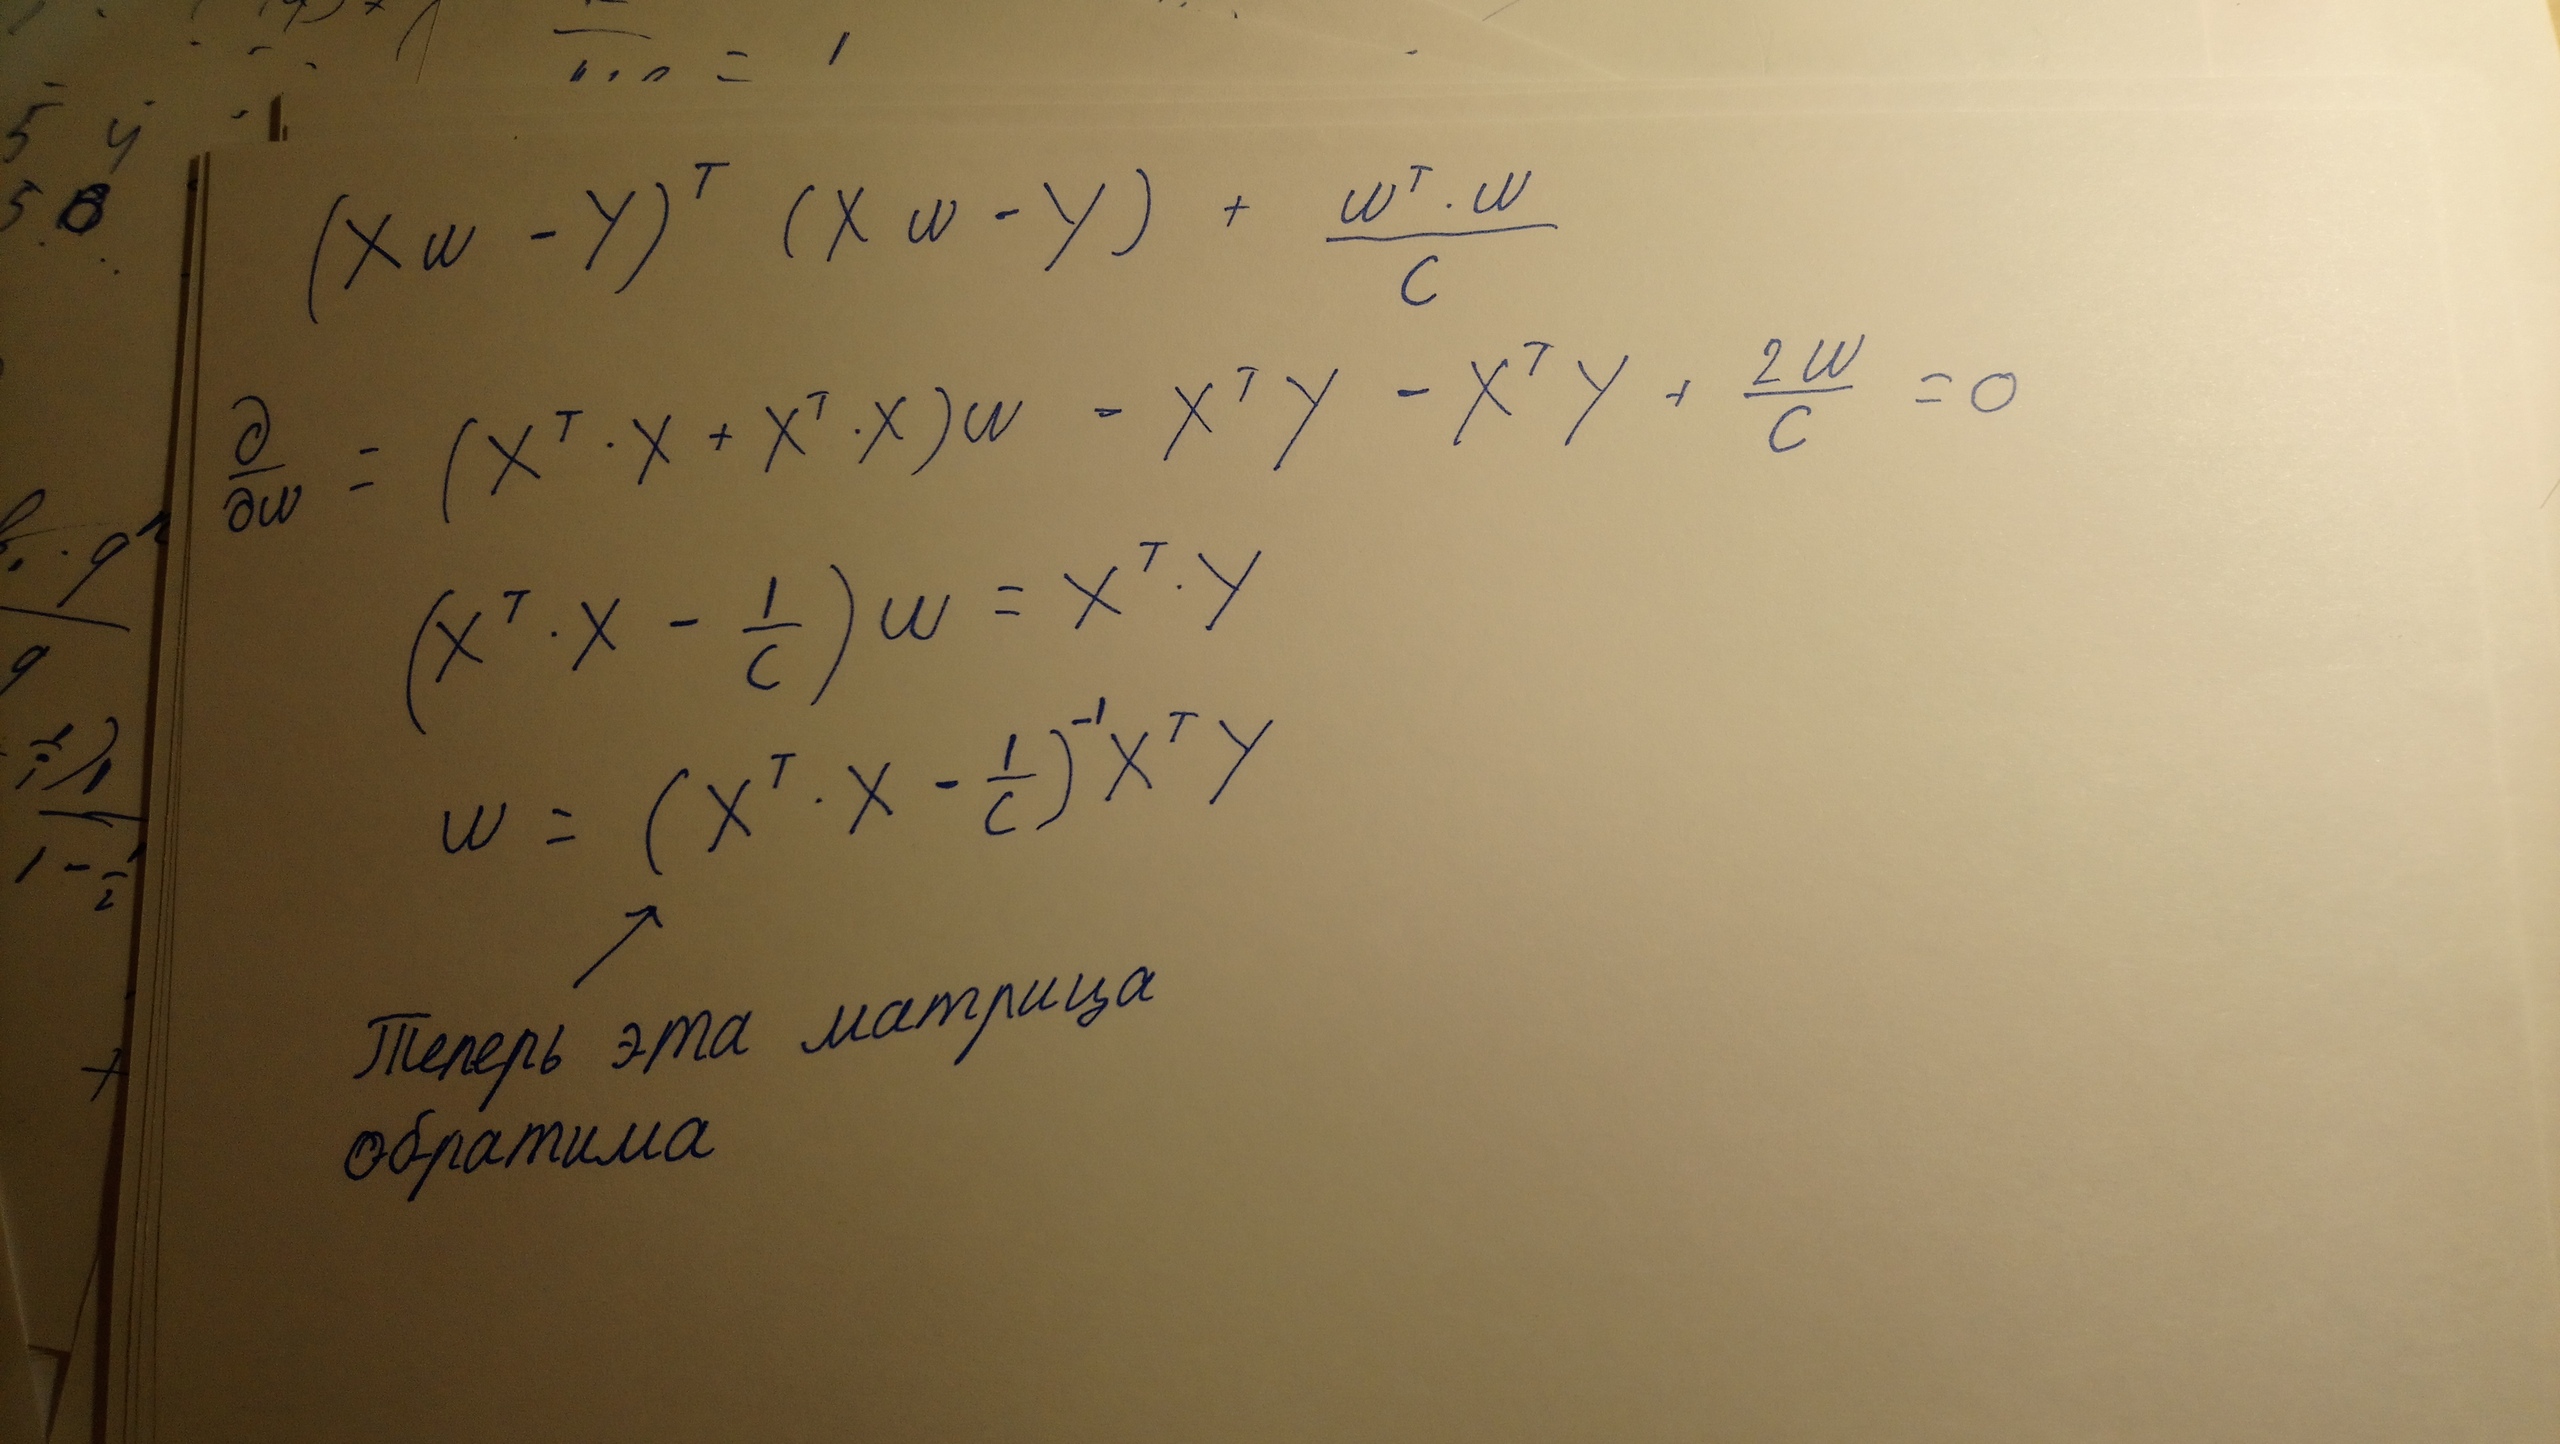 = 1
5 4
(Xw - Y)^T (Xw - Y) + \frac{w^T \cdot w}{C}
\frac{∂}{∂w} = (X^T · X + X^T · X)w - X^T Y - X^T Y + \frac{2w}{C} = 0
(X^T · X - \frac{1}{C})w = X^T · Y
w = (X^T · X - \frac{1}{C})^{-1} X^T Y
Теперь эта матрица
обратима